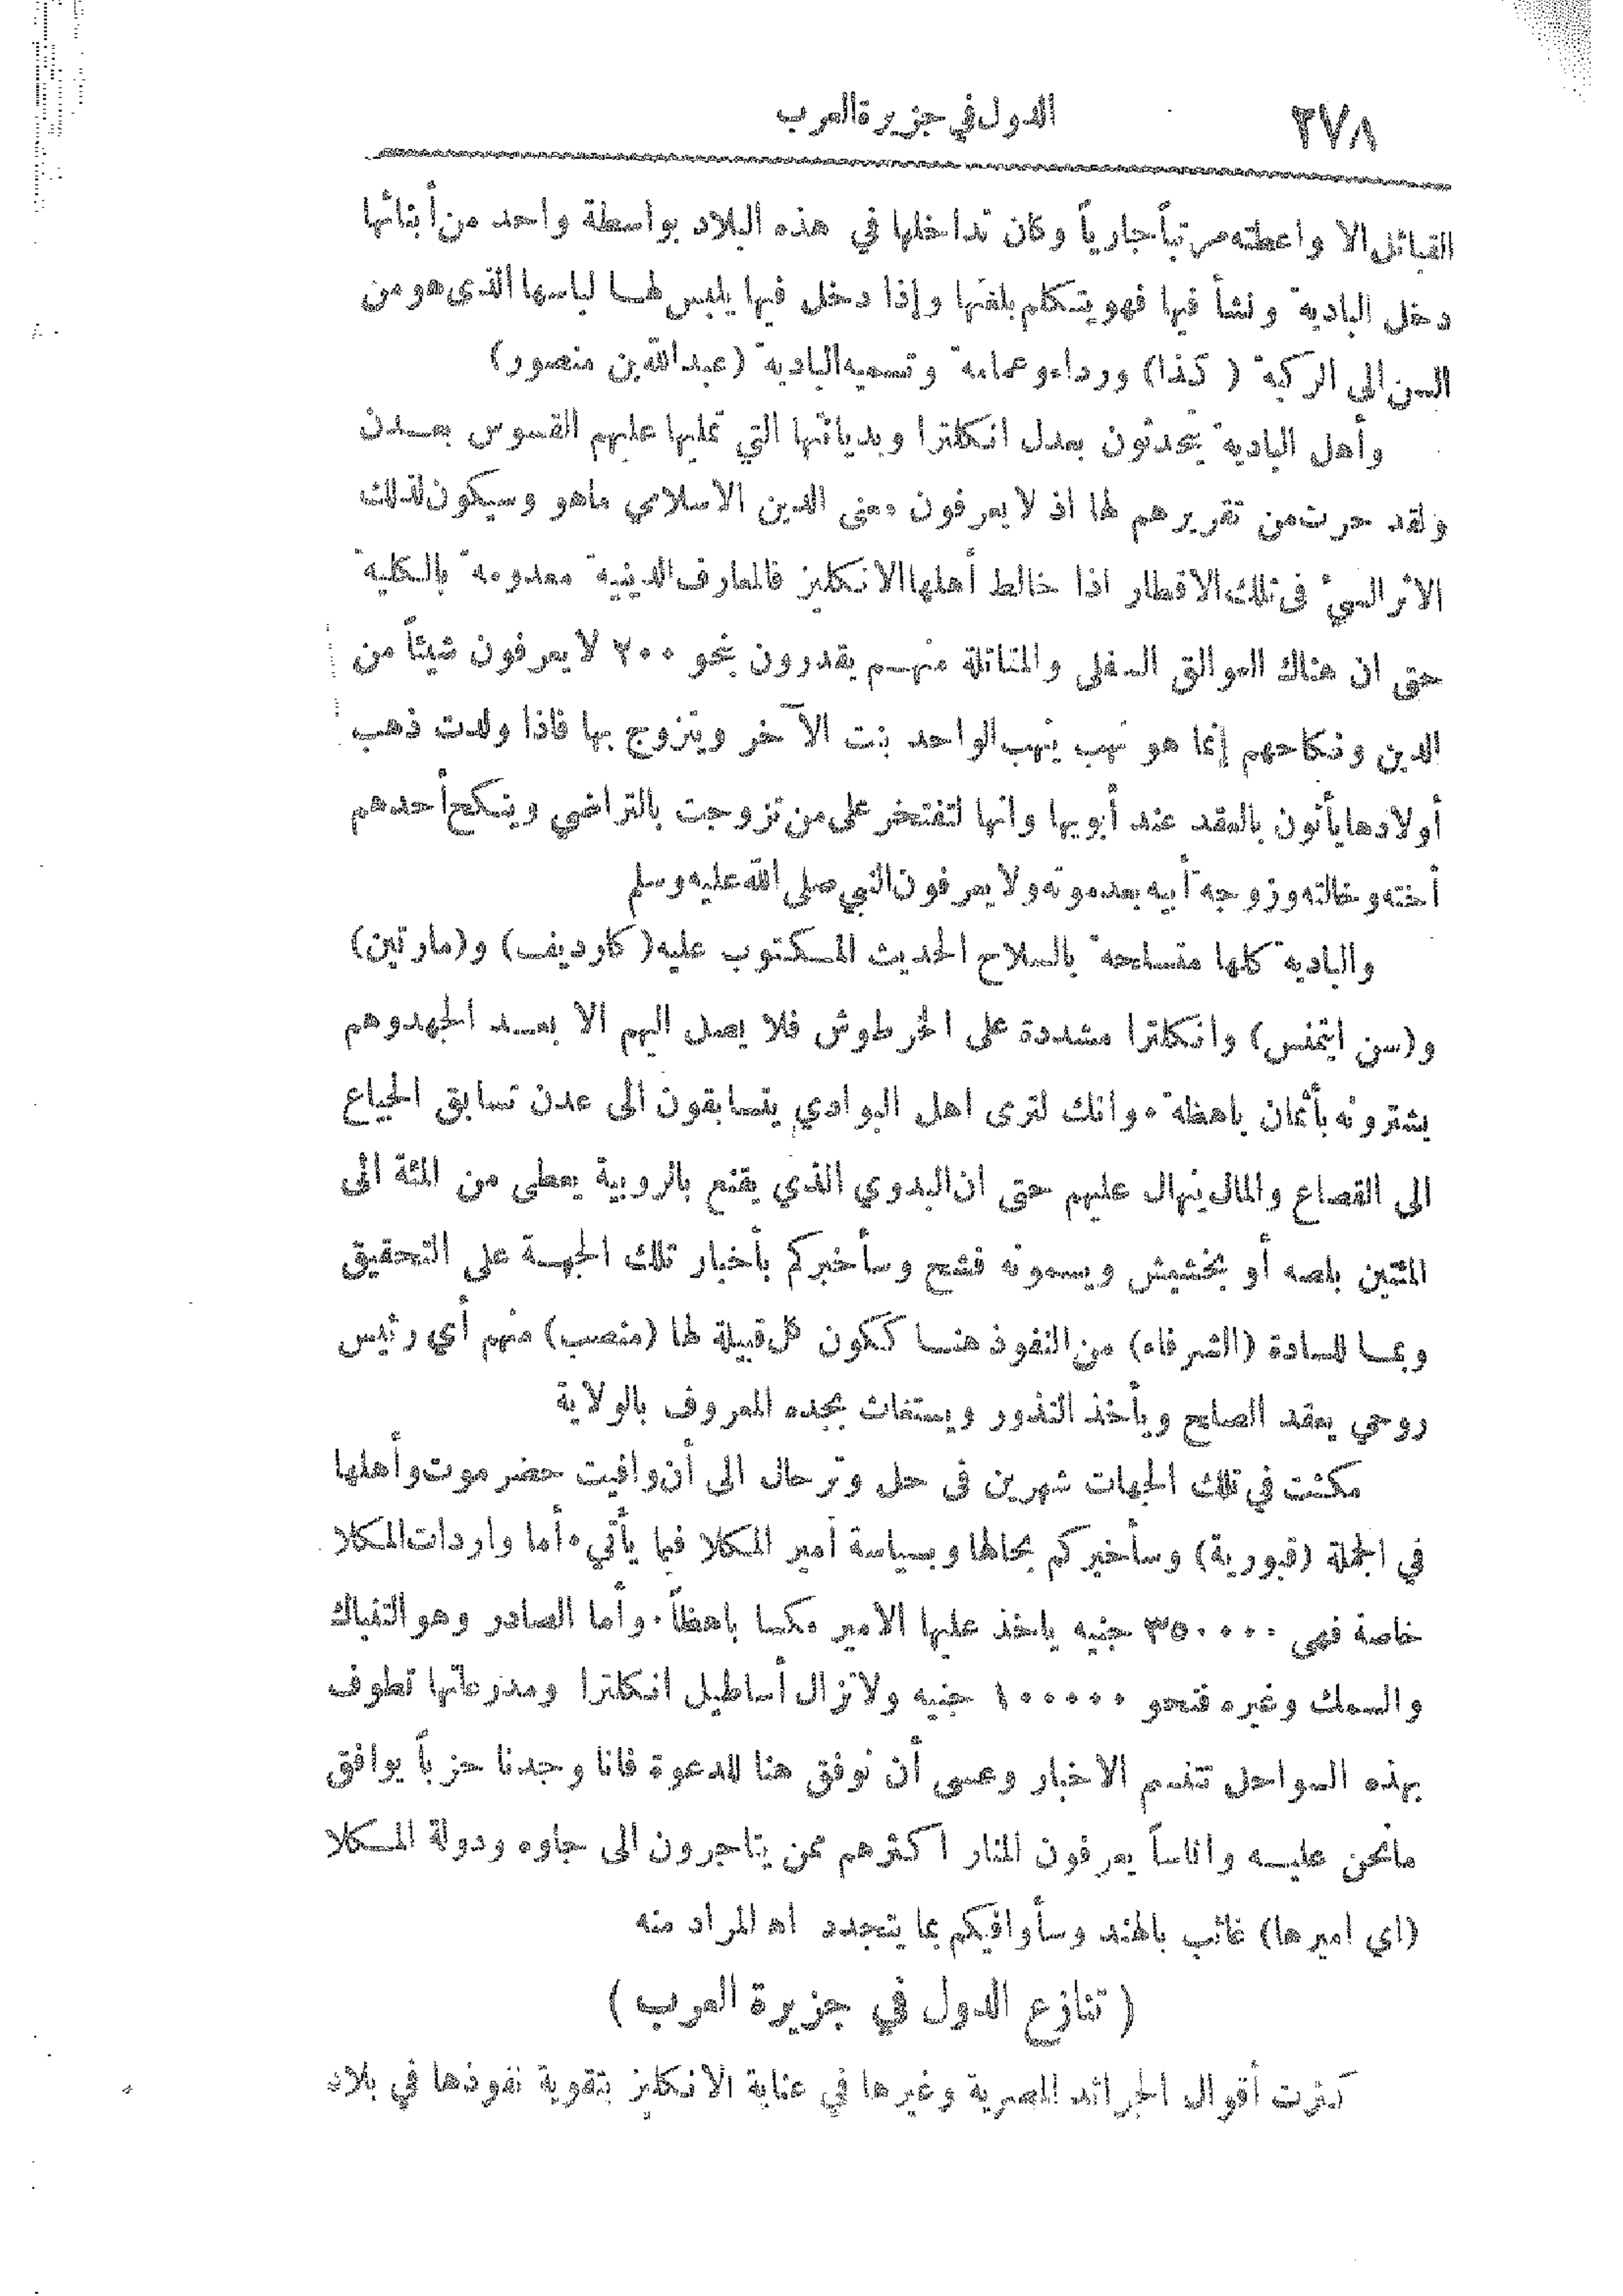 ٢٧٨
الدول في جزيرة العرب
القبائل الا واعطته مرتباً جارياً وكان تداخلها في هذه البلاد بواسطة واحد من أبنائها
دخل البادية ونشأ فيها فهو يتكلم بلغتها وإذا دخل فيها يلبس لهـا لباسها الذى هو من
السن الى الركبة ( كذا) ورداء وعمامة وتسميه البادية (عبد الله بن منصور)
وأهل البادية يتحدثون بعدل انكلترا وبديانتها التي تمليها عليهم القسوس بعـدن
ولقد حرت من تقريرهم لها اذ لا يعرفون معنى الدين الاسلامي ماهو وسيكون لذلك
الاثر السيئ فى تلك الاقطار اذا خالط أهلها الانكليز فالمعارف الدينية معدومة بالكلية
حتى ان هناك العوالق السفلى والمقاتلة منهـم يقدرون بنحو ٢٠٠ لا يعرفون شيئاً من
الدين ونكاحهم إنما هو نهب ينهب الواحد بنت الآخر ويتزوج بها فاذا ولدت ذهب
أولادها يأتون بالعقد عند أبويها وانها لتفتخر على من تزوجت بالتراضي وينكح أحدهم
أخته وخالته وزوجة أبيه بعد موته ولا يعرفون النبي صلى الله عليه وسلم
والبادية كلها متسلحة بالسلاح الحديث المكتوب عليه ( كارديف) و(مارتين)
و(سن ايتجنس) وانكلترا مشددة على الخرطوش فلا يصل اليهم الا بعـد الجهد وهم
يشترونه بأثمان باهظة . وانك لترى اهل البوادي يتسابقون الى عدن تسابق الجياع
الى القصاع والمال ينهال عليهم حتى ان البدوي الذي يقنع بالروبية يعطى من المئة الى
المئتين بلصه أو بخشيش ويسمونه فشح وسأخبركم بأخبار تلك الجهـة على التحقيق
وبمـا للسادة (الشرفاء) من النفوذ هنـا ككون كل قبيلة لها (منصب) منهم أي رئيس
روحي يعقد الصلح ويأخذ النذور ويستغاث بجده المعروف بالولاية
مكثت في تلك الجهات شهرين فى حل وترحال الى أن وافيت حضرموت وأهلها
في الجملة (قبورية) وسأخبركم بحالها وبسياسة أمير المكلا فيما يأتي . أما واردات المكلا
خاصة فهى ٣٥٠٠٠٠ جنيه ياخذ عليها الامير مكسا باهظاً . وأما الصادر وهو التنباك
والسمك وغيره فنحو ١٠٠٠٠٠ جنيه ولا تزال أساطيل انكلترا ومدرعاتها تطوف
بهذه السواحل تنسم الاخبار وعسى أن نوفق هنا للدعوة فانا وجدنا حزباً يوافق
مانحن عليـه واناساً يعرفون المنار اكثرهم ممن يتاجرون الى جاوه ودولة المكلا
(اي اميرها) غائب بالهند وسأوافيكم بما يتجدد اه المراد منه
( تنازع الدول في جزيرة العرب )
كثرت أقوال الجرائد المصرية وغيرها في عناية الانكليز بتقوية نفوذها في بلاد